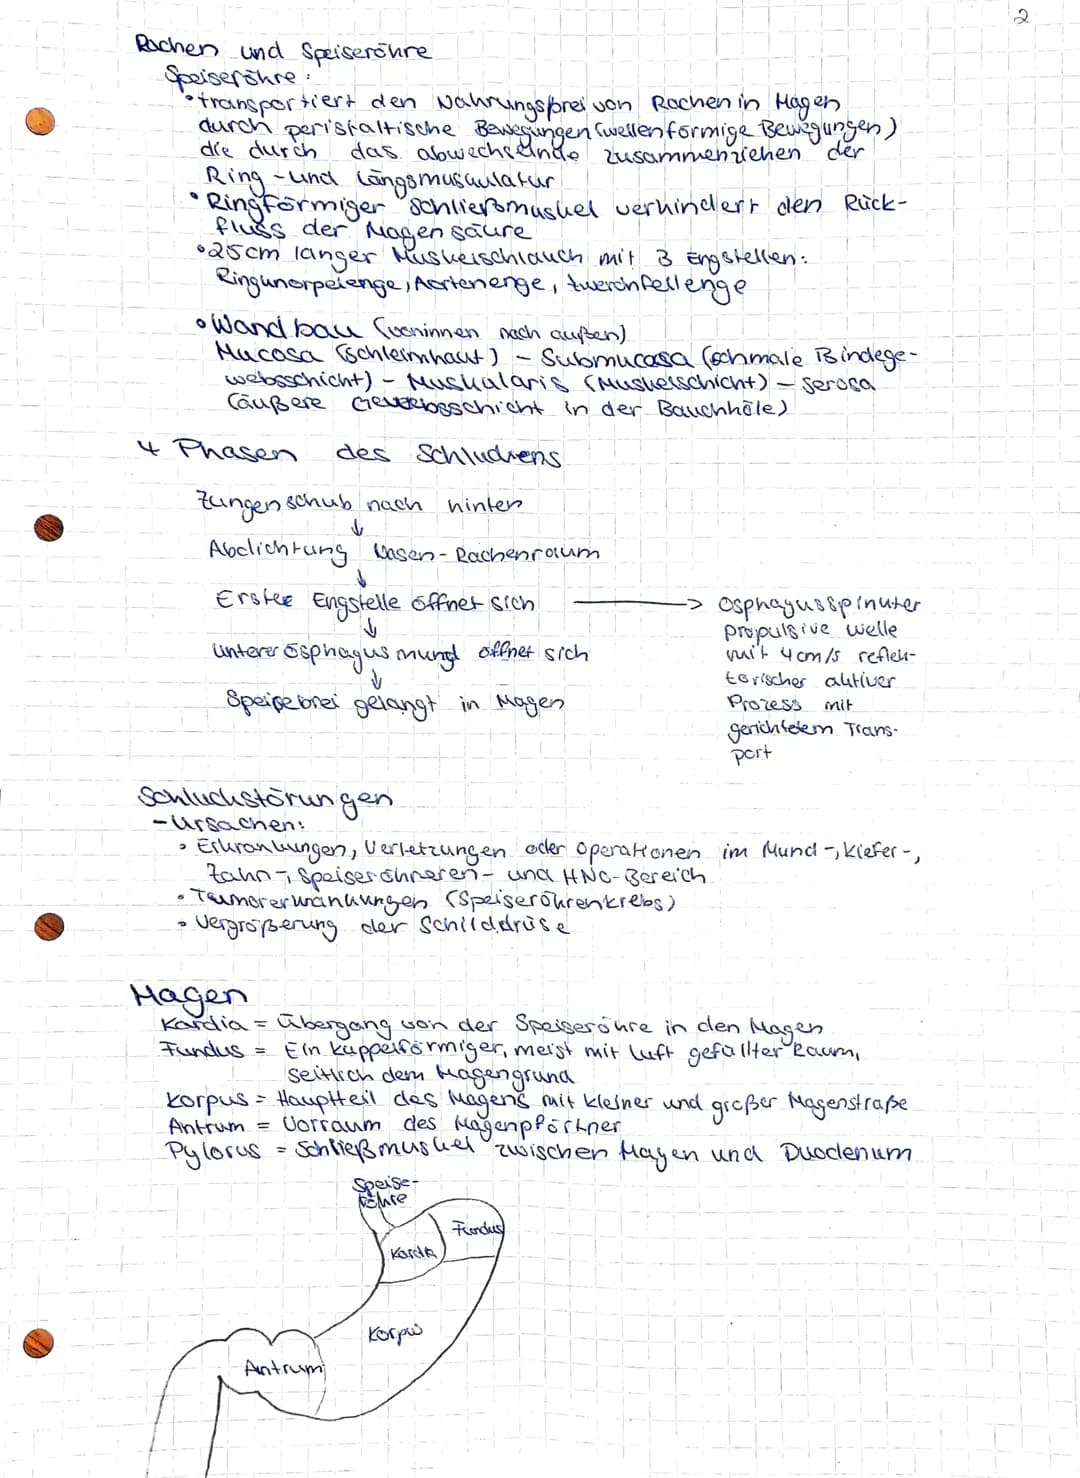 2
Rachen und Speiseröhre
Speiseröhre:
• transportiert den Nahrungsbrei von Rachen in Magen
durch peristaltische Bewegungen (wellenförmige Bewegungen)
die durch das abwechselnde zusammenziehen der
Ring- und Längsmuskulatur
• Ringförmiger Schließmuskel verhindert den Rück-
fluss der Magensäure
• 25cm langer Muskelschlauch mit 3 Engstellen:
Ringknorpelenge, Aortenenge, zwerchfellenge
• Wandbau (von innen nach außen)
Mucosa (Schleimhaut) - Submucosa (schmale Bindege-
websschicht) - Muskularis (Muskelschicht) - Serosa
(äußere Gewebsschicht in der Bauchhöle)
4 Phasen des Schluckens
Zungenschub nach hinten
↓
Abdichtung Nasen-Rachenraum
↓
Erste Engstelle öffnet sich → Ösphagusspinkter
propulsive welle
mit 4cm/s reflek-
torischer aktiver
Prozess mit
gerichtetem Trans-
port
↓
unterer Ösphagusmund öffnet sich
↓
Speisebrei gelangt in Magen
Schluckstörungen
- Ursachen:
• Erkrankungen, Verletzungen oder Operationen im Mund-, Kiefer-,
Zahn-, Speiseröhreren- und HNO-Bereich
• Tumorerkrankungen (Speiseröhrenkrebs)
• Vergrößerung der Schilddrüse
Magen
Kardia = Übergang von der Speiseröhre in den Magen
Fundus = Ein kuppelförmiger, meist mit Luft gefüllter Raum,
seitlich dem Magengrund
Korpus = Hauptteil des Magens mit kleiner und großer Magenstraße
Antrum = Vorraum des Magenpförtner
Pylorus = Schließmuskel zwischen Magen und Duodenum
Speise-
röhre
Fundus
Kardia
Korpus
Antrum